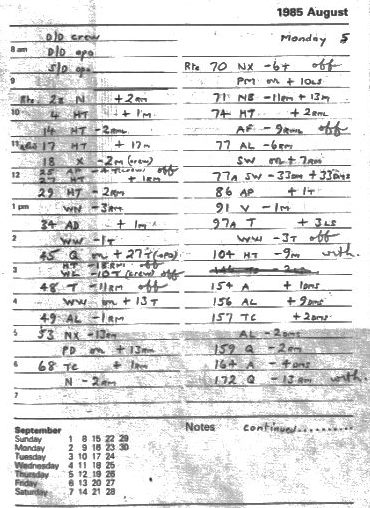 1985 August
Monday 5
D/D crew
8 am D/D opo
S/D opo
9
Rte. 2B N + 2RM
10 4 HT + 1M
14 HT - 2RML
11 17 HT + 17M
18 X - 2M (crew)
12 25 AP off
27 HT + 1RM
29 HT - 2RM
1 pm WN - 3RM
34 AD + 1M
2 WW - 1T
45 Q on + 27T (OPO)
HT - 18RM off
3 WL - 10T (crew) off
48 T - 11RM off
4 WW on + 13T
49 AL - 1RM
5 53 NX - 13RM
PD on + 13RM
6 68 TC + 1RM
N - 2RM
7
Rte 70 NX - 6T off
PM on + 10LS
71 NB - 11RM + 13M
74 HT + 2RM
AF - 9RML off
77 AL - 6RM
SW on + 7RM
77A SW - 33DM + 33DMS
86 AP + 1T
91 V - 1M
97A T + 3LS
WW - 3T off
104 HT - 9M with.
154 A + 1DMS
156 AL + 9DMS
157 TC + 2DMS
AL - 2DMS
159 Q - 2RM
164 A - 4DMS
172 Q - 13RM with.
September
Sunday 1 8 15 22 29
Monday 2 9 16 23 30
Tuesday 3 10 17 24
Wednesday 4 11 18 25
Thursday 5 12 19 26
Friday 6 13 20 27
Saturday 7 14 21 28
Notes continued..........